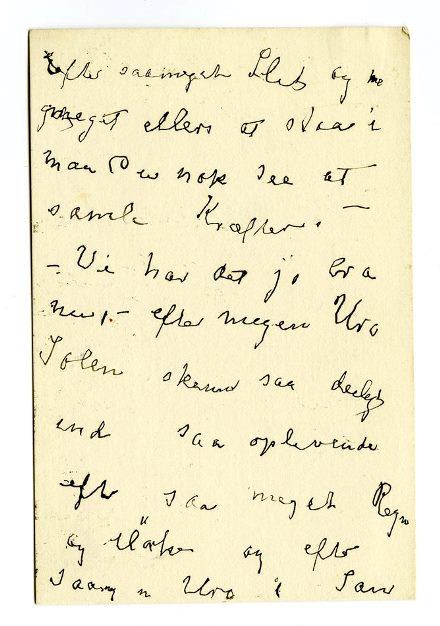 efter saameget Slit og
meget ellers at staa i
maa De nok see at
samle Kræfter. –
– Vi har det jo bra
nu, – efter megen Uro
Solen skinner saa deiligt
ind saa oplivende
efter saa meget Regn
og Mörke og efter
saamn Uro i Sam